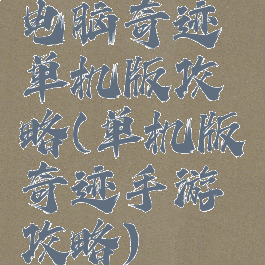 电脑奇迹
单机版攻
略(单机版
奇迹手游
攻略)